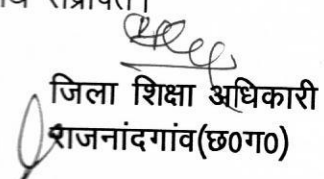 जिला शिक्षा अधिकारी
राजनांदगांव(छ0ग0)